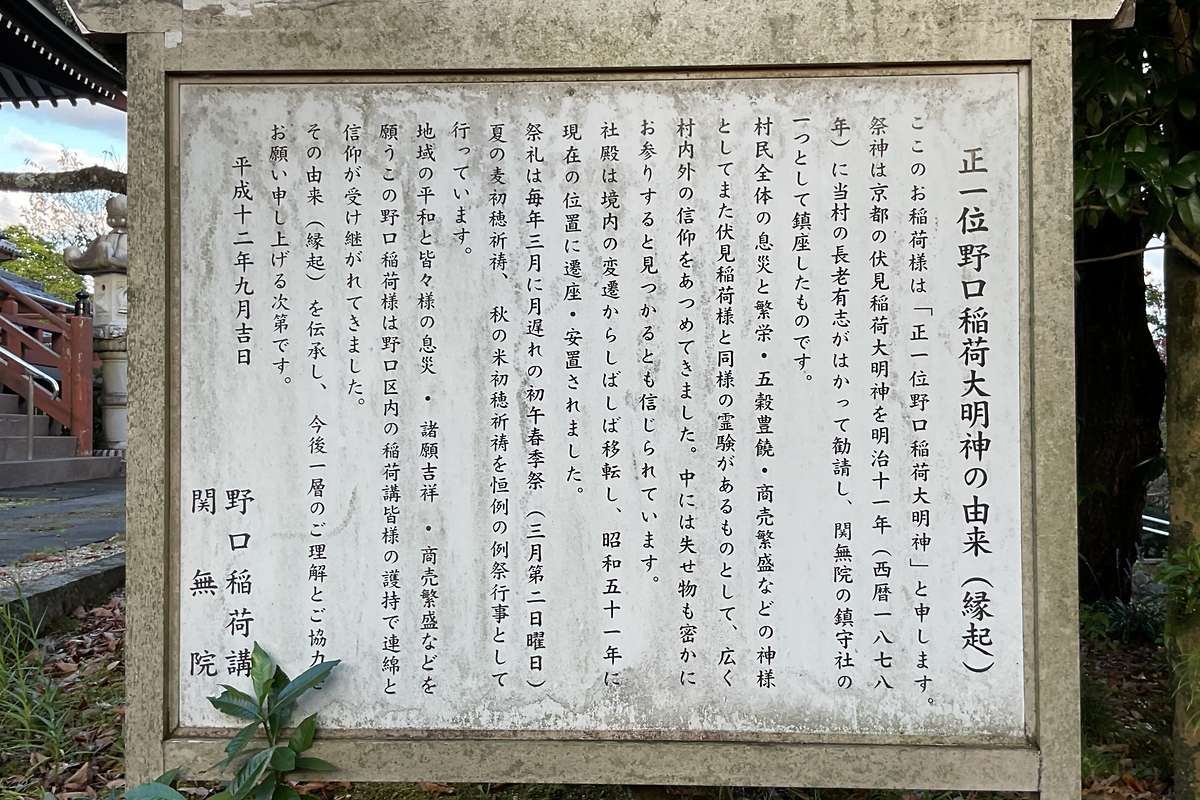 正一位野口稲荷大明神の由来（縁起）
ここのお稲荷様は「正一位野口稲荷大明神」と申します。
祭神は京都の伏見稲荷大明神を明治十一年（西暦一八七八
年）に当村の長老有志がはかって勧請し、関無院の鎮守社の
一つとして鎮座したものです。
村民全体の息災と繁栄・五穀豊饒・商売繁盛などの神様
としてまた伏見稲荷様と同様の霊験があるものとして、広く
村内外の信仰をあつめてきました。中には失せ物も密かに
お参りすると見つかるとも信じられています。
社殿は境内の変遷からしばしば移転し、昭和五十一年に
現在の位置に遷座・安置されました。
祭礼は毎年三月に月遅れの初午春季祭（三月第二日曜日）
夏の麦初穂祈祷、秋の米初穂祈祷を恒例の例祭行事として
行っています。
地域の平和と皆々様の息災・諸願吉祥・商売繁盛などを
願うこの野口稲荷様は野口区内の稲荷講皆様の護持で連綿と
信仰が受け継がれてきました。
その由来（縁起）を伝承し、今後一層のご理解とご協力
お願い申し上げる次第です。
平成十二年九月吉日
野口稲荷講
関無院